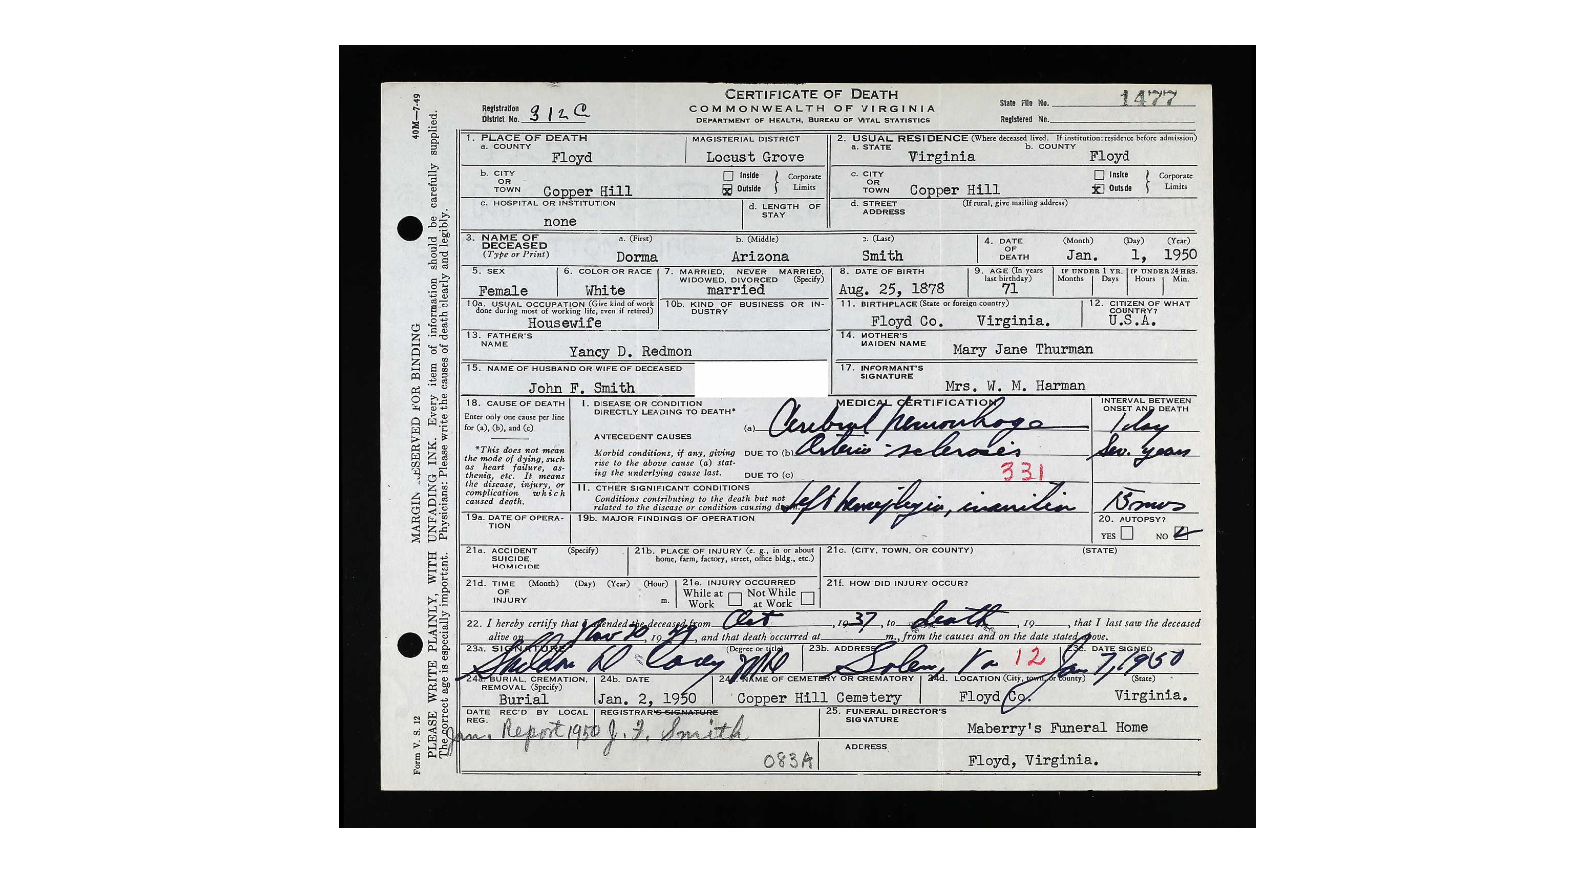 CERTIFICATE OF DEATH
COMMONWEALTH OF VIRGINIA
DEPARTMENT OF HEALTH, BUREAU OF VITAL STATISTICS
Registration District No. 312C
State File No. 1477
Registered No.
40M—7-49
MARGIN RESERVED FOR BINDING
PLEASE WRITE PLAINLY, WITH UNFADING INK. Every item of information should be carefully supplied.
The correct age is especially important. Physicians: Please write the causes of death clearly and legibly.
Form V. S. 12
1. PLACE OF DEATH
a. COUNTY Floyd
MAGISTERIAL DISTRICT Locust Grove
2. USUAL RESIDENCE (Where deceased lived. If institution: residence before admission)
a. STATE Virginia b. COUNTY Floyd
b. CITY OR TOWN Copper Hill
Inside Outside x Corporate Limits
c. CITY OR TOWN Copper Hill
Inside Outside x Corporate Limits
c. HOSPITAL OR INSTITUTION none
d. LENGTH OF STAY
d. STREET ADDRESS (If rural, give mailing address)
3. NAME OF DECEASED (Type or Print)
a. (First) Dorma b. (Middle) Arizona c. (Last) Smith
4. DATE OF DEATH (Month) (Day) (Year) Jan. 1, 1950
5. SEX Female
6. COLOR OR RACE White
7. MARRIED, NEVER MARRIED, WIDOWED, DIVORCED (Specify) married
8. DATE OF BIRTH Aug. 25, 1878
9. AGE (In years last birthday) 71
IF UNDER 1 YR. Months Days
IF UNDER 24 HRS. Hours Min.
10a. USUAL OCCUPATION (Give kind of work done during most of working life, even if retired) Housewife
10b. KIND OF BUSINESS OR INDUSTRY
11. BIRTHPLACE (State or foreign country) Floyd Co. Virginia.
12. CITIZEN OF WHAT COUNTRY? U.S.A.
13. FATHER'S NAME Yancy D. Redmon
14. MOTHER'S MAIDEN NAME Mary Jane Thurman
15. NAME OF HUSBAND OR WIFE OF DECEASED John F. Smith
17. INFORMANT'S SIGNATURE Mrs. W. M. Harman
18. CAUSE OF DEATH
Enter only one cause per line for (a), (b), and (c)
*This does not mean the mode of dying, such as heart failure, asthenia, etc. It means the disease, injury, or complication which caused death.
MEDICAL CERTIFICATION
INTERVAL BETWEEN ONSET AND DEATH
I. DISEASE OR CONDITION DIRECTLY LEADING TO DEATH*
(a) Cerebral hemorrhage 1 day
ANTECEDENT CAUSES
Morbid conditions, if any, giving rise to the above cause (a) stating the underlying cause last.
DUE TO (b) Arterio-sclerosis Sev. years
DUE TO (c)
331
II. OTHER SIGNIFICANT CONDITIONS
Conditions contributing to the death but not related to the disease or condition causing death.
left hemiplegia, inanition
mos
19a. DATE OF OPERATION
19b. MAJOR FINDINGS OF OPERATION
20. AUTOPSY?
YES NO
21a. ACCIDENT SUICIDE HOMICIDE (Specify)
21b. PLACE OF INJURY (e. g., in or about home, farm, factory, street, office bldg., etc.)
21c. (CITY, TOWN, OR COUNTY) (STATE)
21d. TIME OF INJURY (Month) (Day) (Year) (Hour) m.
21e. INJURY OCCURRED
While at Work Not While at Work
21f. HOW DID INJURY OCCUR?
22. I hereby certify that I attended the deceased from Oct, 1937, to death, 19, that I last saw the deceased
alive on Nov 20, 1949, and that death occurred at m., from the causes and on the date stated above.
23a. SIGNATURE (Degree or title) MD
23b. ADDRESS Salem, Va 12
23c. DATE SIGNED Jan 7, 1950
24a. BURIAL, CREMATION, REMOVAL (Specify) Burial
24b. DATE Jan. 2, 1950
24c. NAME OF CEMETERY OR CREMATORY Copper Hill Cemetery
24d. LOCATION (City, town, or county) (State) Floyd Co. Virginia.
DATE REC'D BY LOCAL REG. Jan. Report 1950
REGISTRAR'S SIGNATURE J. F. Smith
25. FUNERAL DIRECTOR'S SIGNATURE Maberry's Funeral Home
083A
ADDRESS Floyd, Virginia.